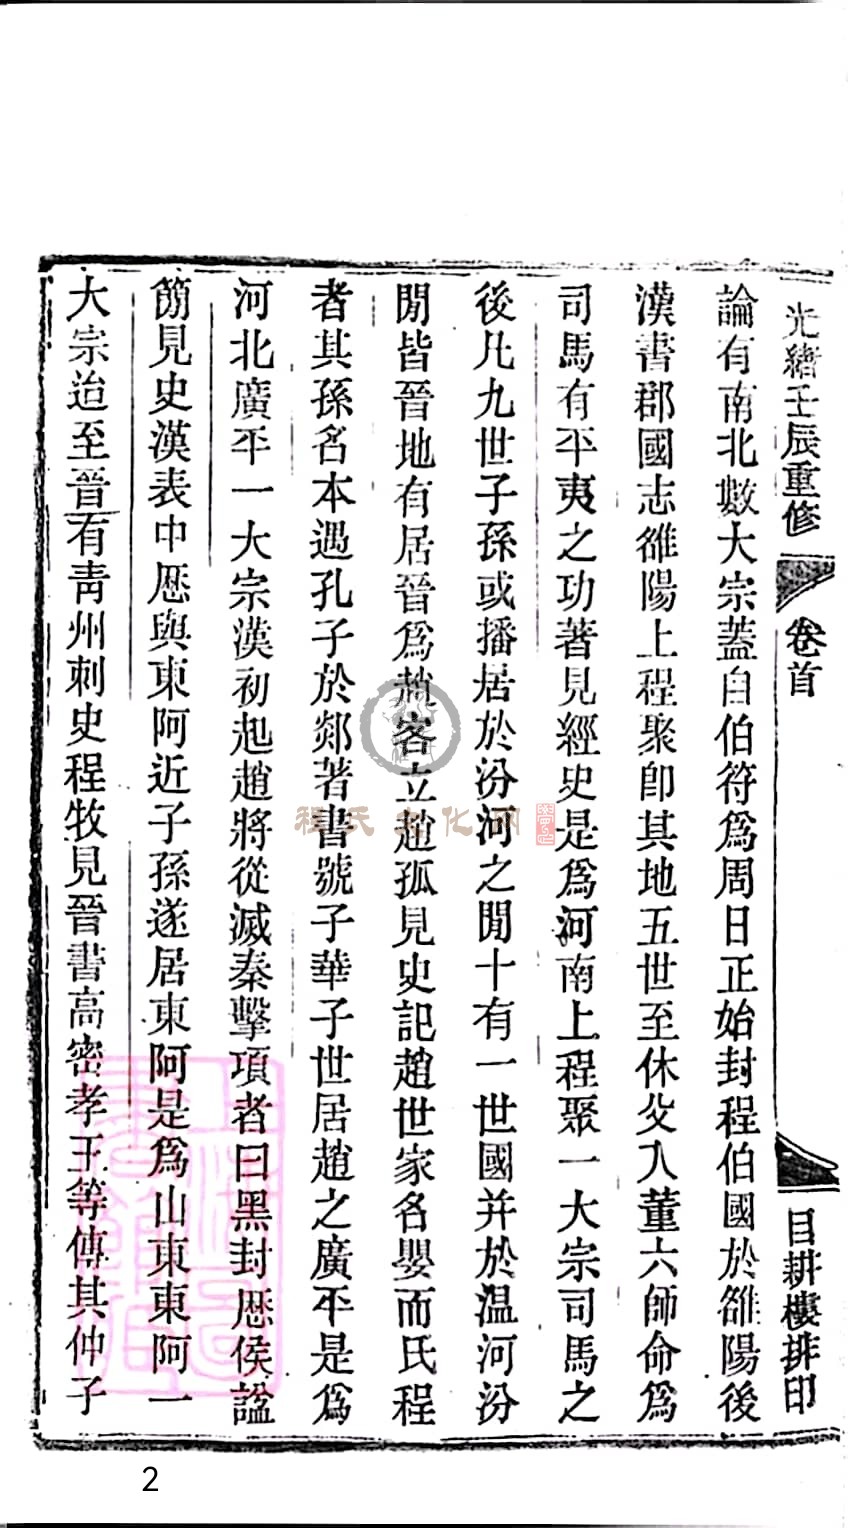 光緒壬辰重修
卷首
目耕樓排印
論有南北數大宗蓋自伯符爲周日正始封程伯國於雒陽後
漢書郡國志雒陽上程聚卽其地五世至休父入董六師命爲
司馬有平夷之功著見經史是爲河南上程聚一大宗司馬之
後凡九世子孫或播居於汾河之閒十有一世國并於温河汾
閒皆晉地有居晉爲趙客立趙孤見史記趙世家名嬰而氏程
者其孫名本遇孔子於郯著書號子華子世居趙之廣平是爲
河北廣平一大宗漢初起趙將從滅秦擊項者曰黑封歷侯諡
簡見史漢表中歷與東阿近子孫遂居東阿是爲山東東阿一
大宗迨至晉有靑州刺史程牧見晉書高密孝王等傳其仲子
程氏文化网
2